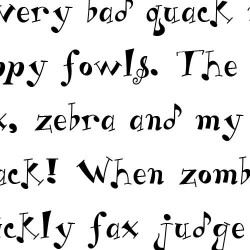 very bad quack
ppy fowls. The
x, zebra and my
ack! When zomb
ickly fax judge